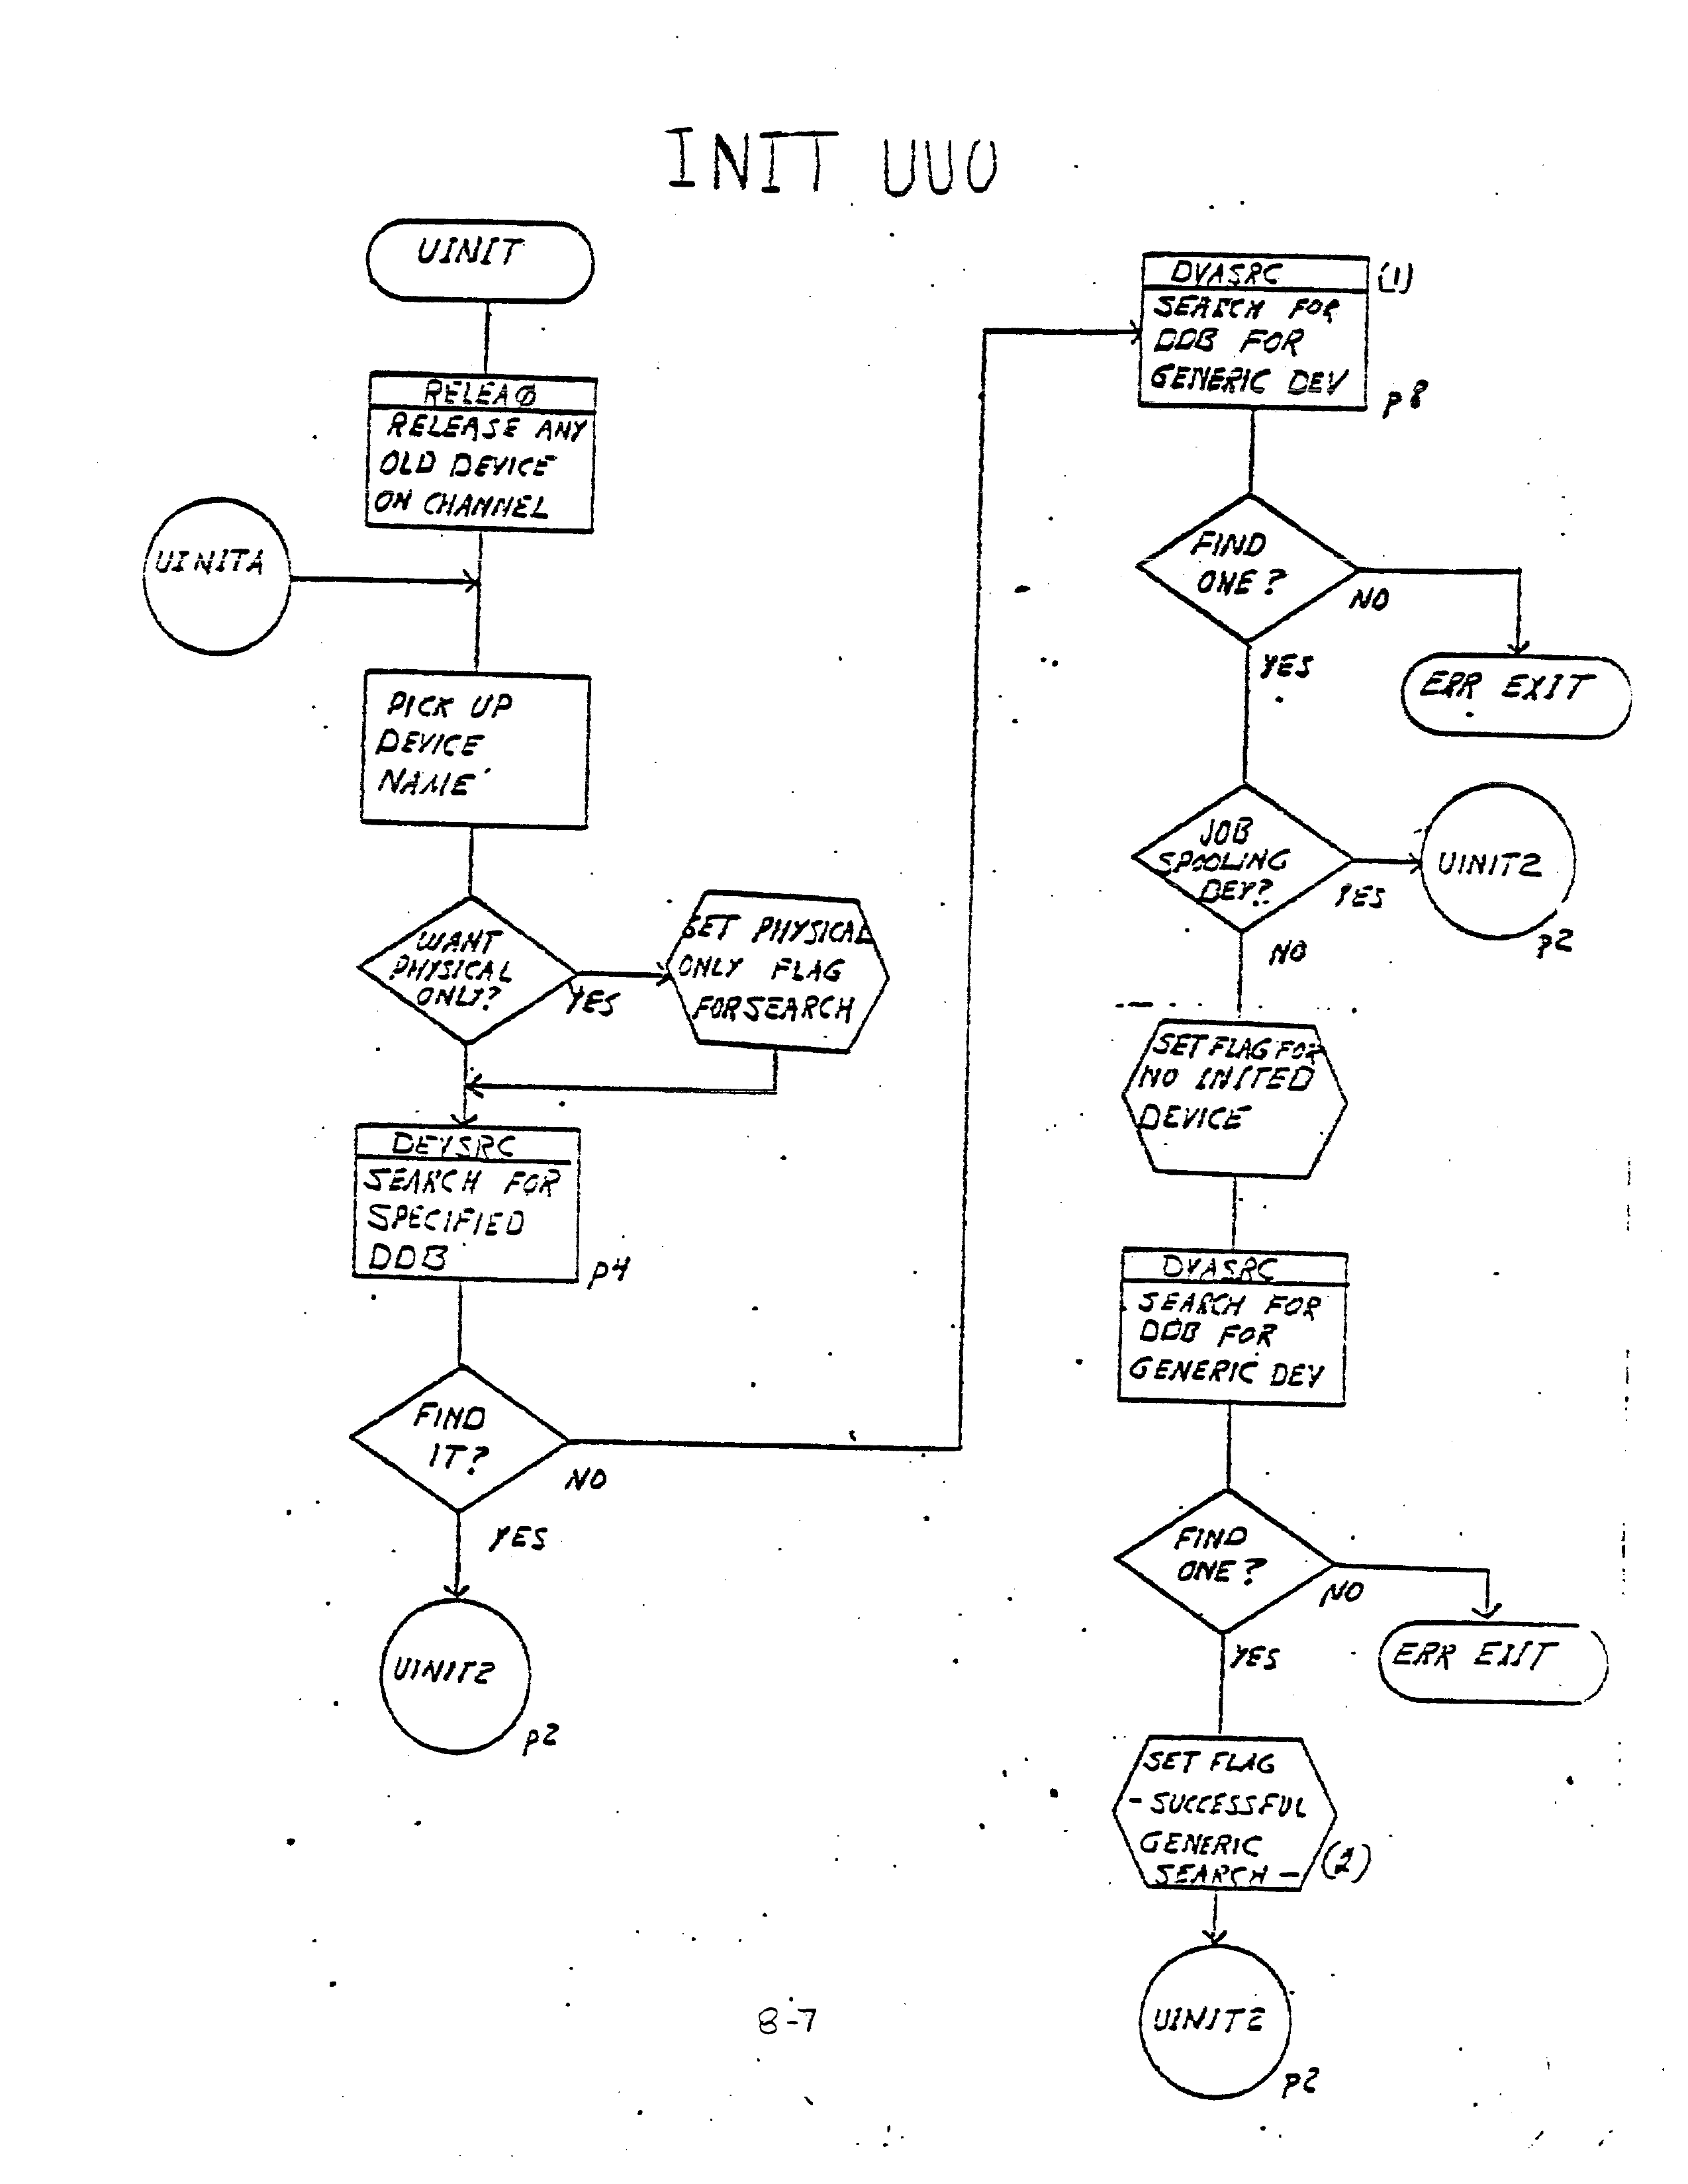 INIT UUO
UINIT
RELEAØ
RELEASE ANY
OLD DEVICE
ON CHANNEL
UINITA
PICK UP
DEVICE
NAME
WANT
PHYSICAL
ONLY?
YES
SET PHYSICAL
ONLY FLAG
FOR SEARCH
DEVSRC
SEARCH FOR
SPECIFIED
DDB
p4
FIND
IT?
NO
YES
UINIT2
p2
DVASRC
(1)
SEARCH FOR
DDB FOR
GENERIC DEV
p8
FIND
ONE?
NO
YES
ERR EXIT
JOB
SPOOLING
DEV?
YES
UINIT2
p2
NO
SET FLAG FOR
NO INITED
DEVICE
DVASRC
SEARCH FOR
DDB FOR
GENERIC DEV
FIND
ONE?
NO
YES
ERR EXIT
SET FLAG
- SUCCESSFUL
GENERIC
SEARCH -
(2)
UINIT2
p2
8-7